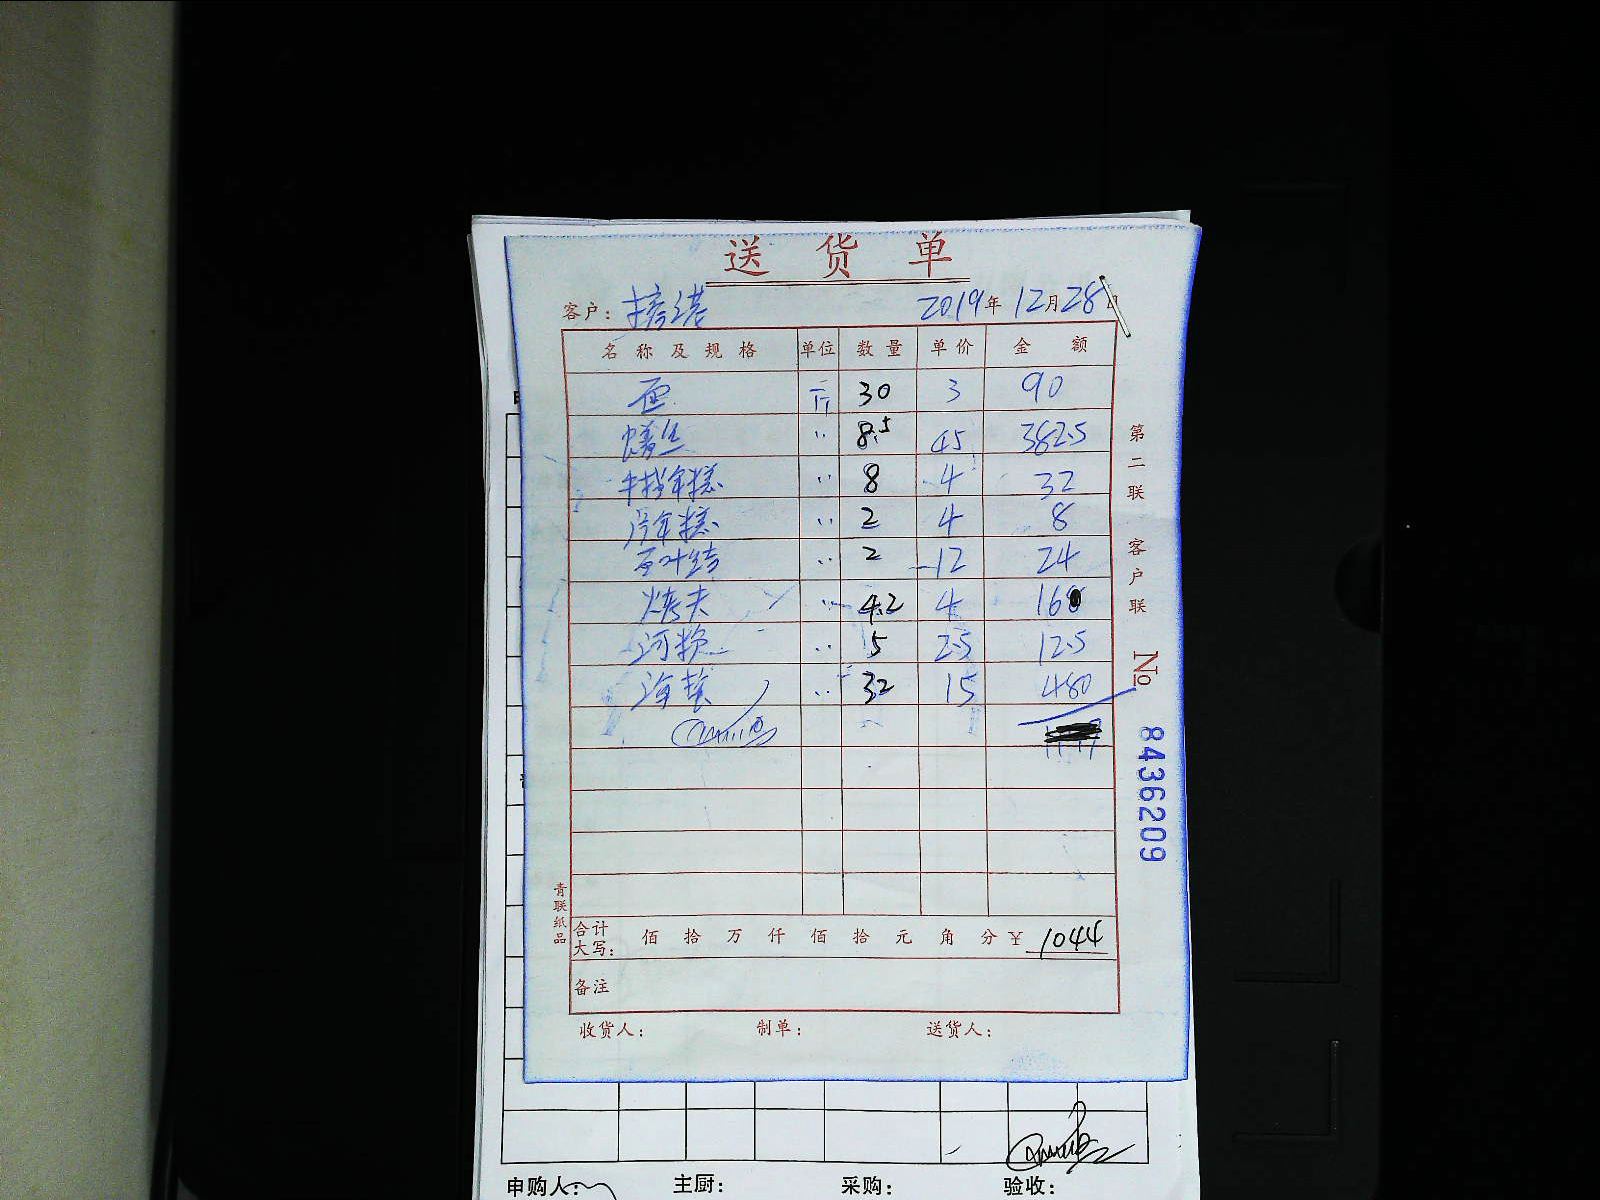 送货单
客户: 2019年12月28日
名称及规格 单位 数量 单价 金额
面 斤 30 3 90
鳝丝 〃 8.5 45 382.5
年糕 〃 8 4 32
片年糕 〃 2 4 8
百叶结 〃 2 12 24
烤夫 〃 4.2 4 16
河粉 〃 5 2.5 12.5
海蜇 〃 32 15 480
合计大写: 佰 拾 万 仟 佰 拾 元 角 分 ¥ 1044
备注
收货人: 制单: 送货人:
第二联 客户联
No 8436209
青联纸品
申购人: 主厨: 采购: 验收: